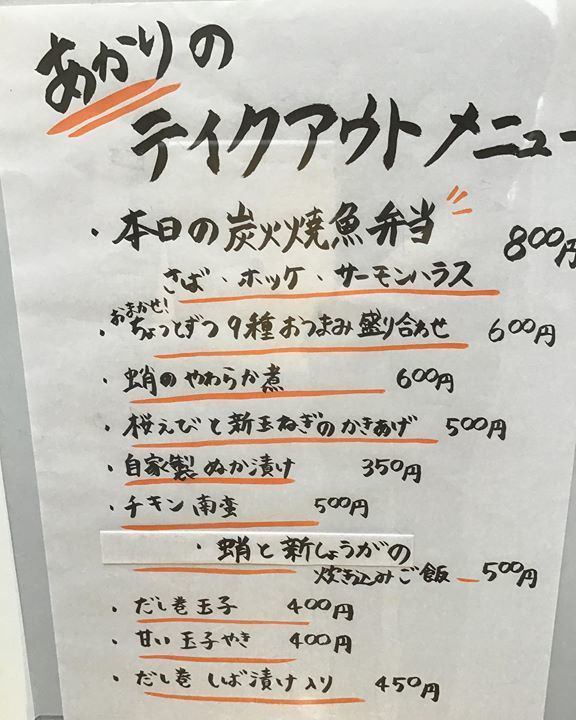 あかりの
テイクアウトメニュー
・本日の炭火焼魚弁当 800円
さば・ホッケ・サーモンハラス
おまかせ!
・ちょっとずつ9種おつまみ盛り合わせ 600円
・蛸のやわらか煮 600円
・桜えびと新玉ねぎのかきあげ 500円
・自家製ぬか漬け 350円
・チキン南蛮 500円
・蛸と新しょうがの
炊き込みご飯 500円
・だし巻玉子 400円
・甘い玉子やき 400円
・だし巻 しば漬け入り 450円